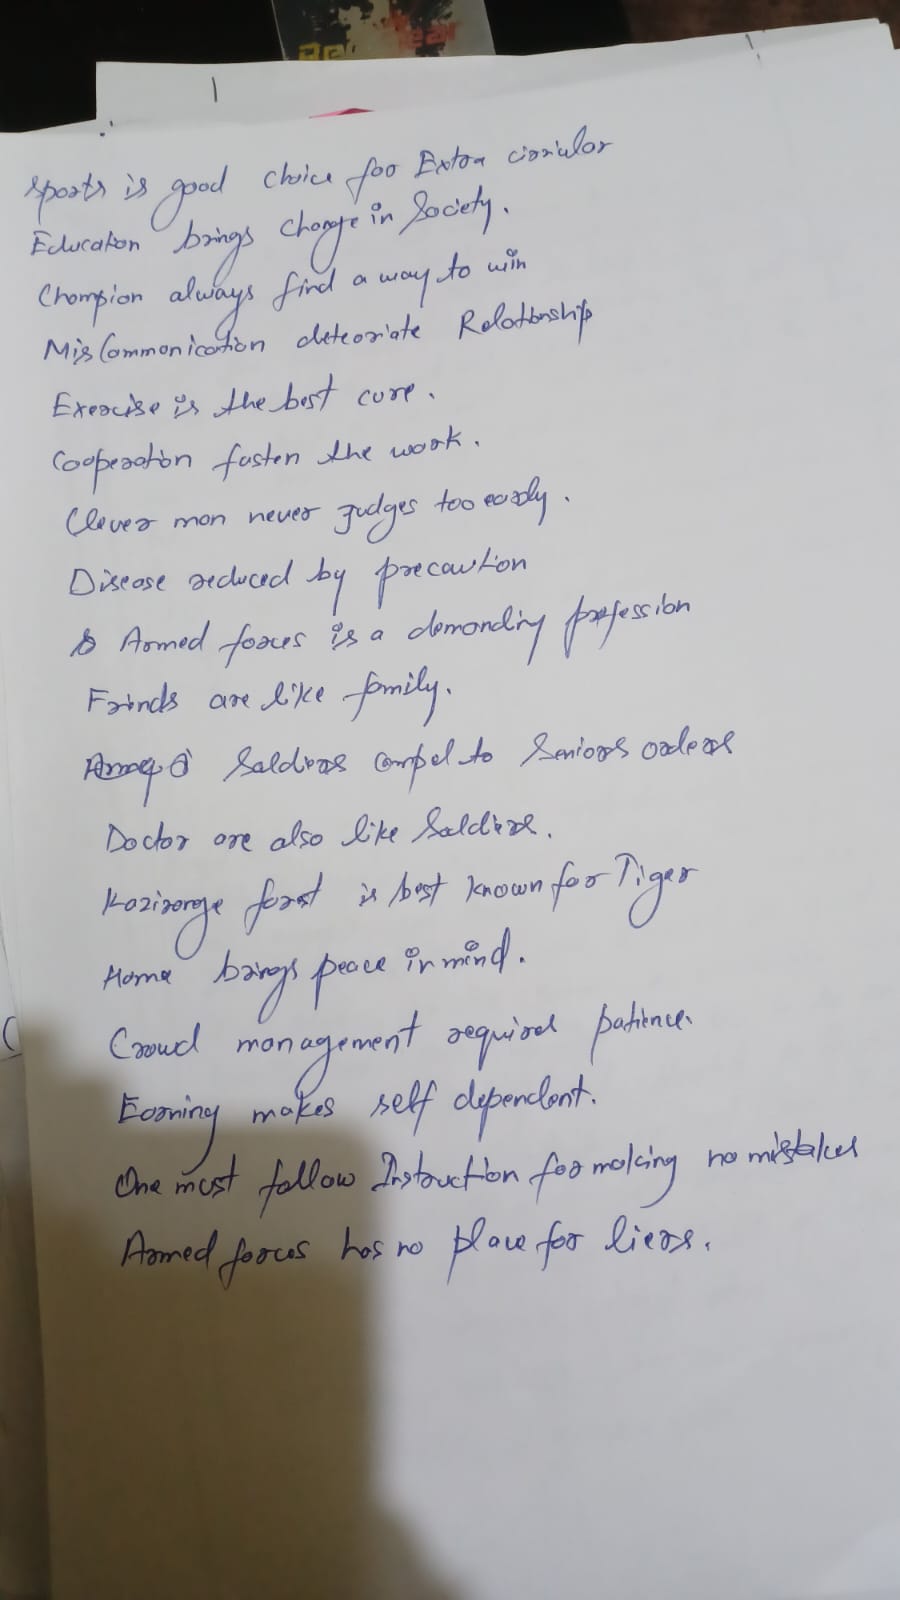 Sports is good choice for Extra cirriular
Education brings change in Society.
Champion always find a way to win
MisCommonication deteoriate Relationship
Exercise is the best cure.
Cooperation fasten the work.
Clever man never judges too early.
Disease reduced by precaution
Armed forces is a demanding profession
Frinds are like family.
Saldiers compel to Seniors orders
Doctor are also like Saldiers.
Kazironge forest is best known for Tiger
Home brings peace in mind.
Crowd management required patience.
Earning makes self dependent.
One must follow Instruction for making no mistakes
Armed forces has no place for liers.